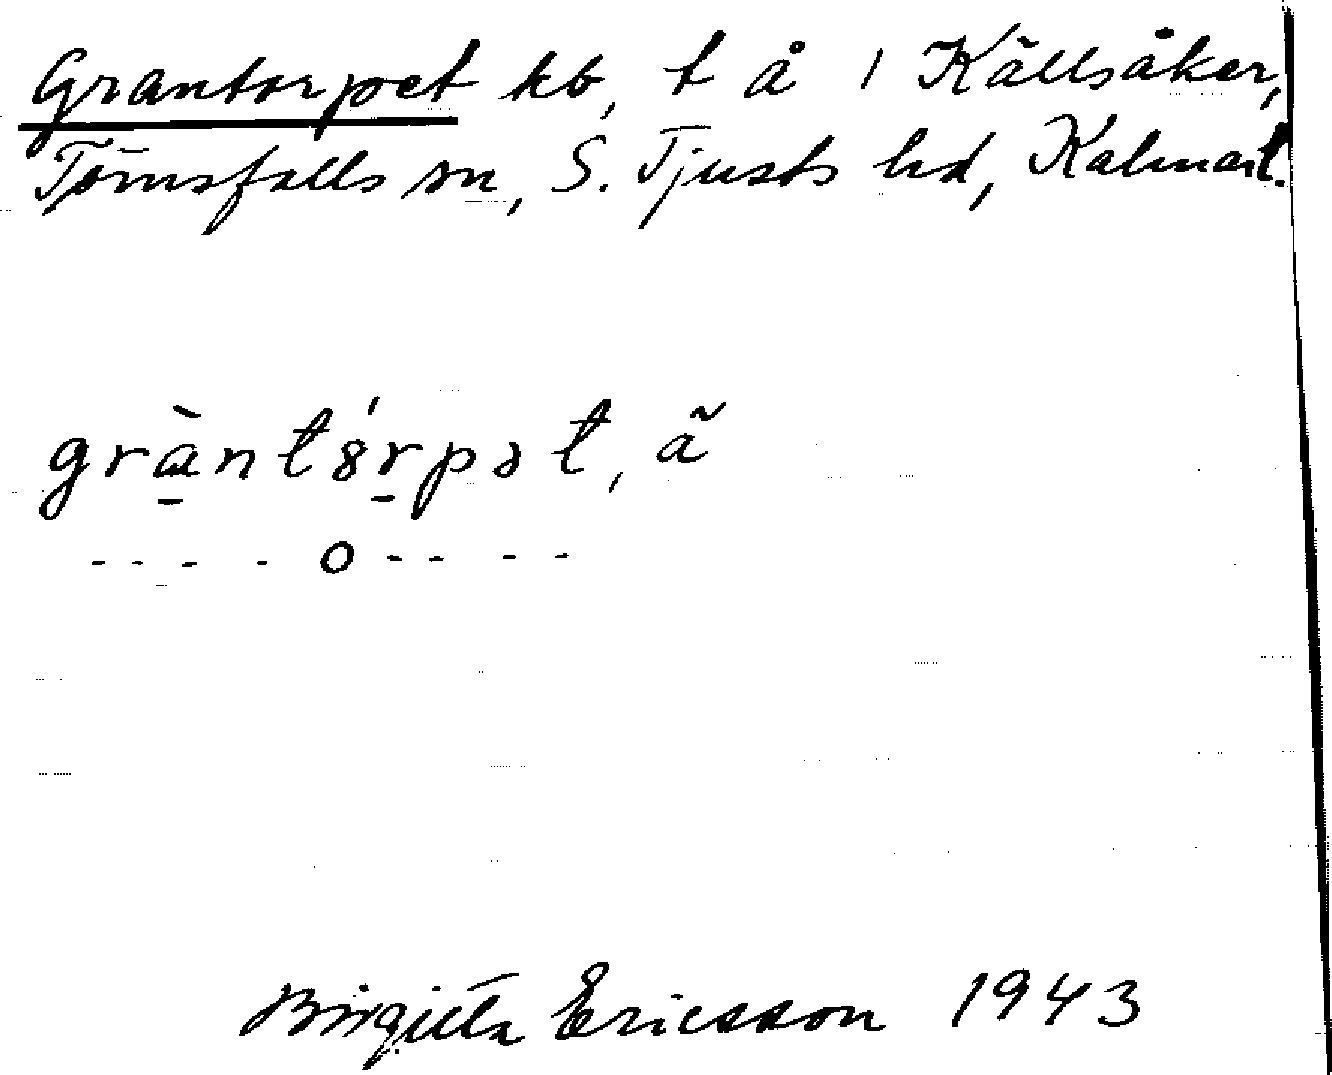 Grantorpet kb, t å i Källsåker,
Törnsfalls sn, S. Tjusts hd, Kalmar l.
gràntórpət, ã
- - - - o - - - -
Birgitta Ericsson 1943